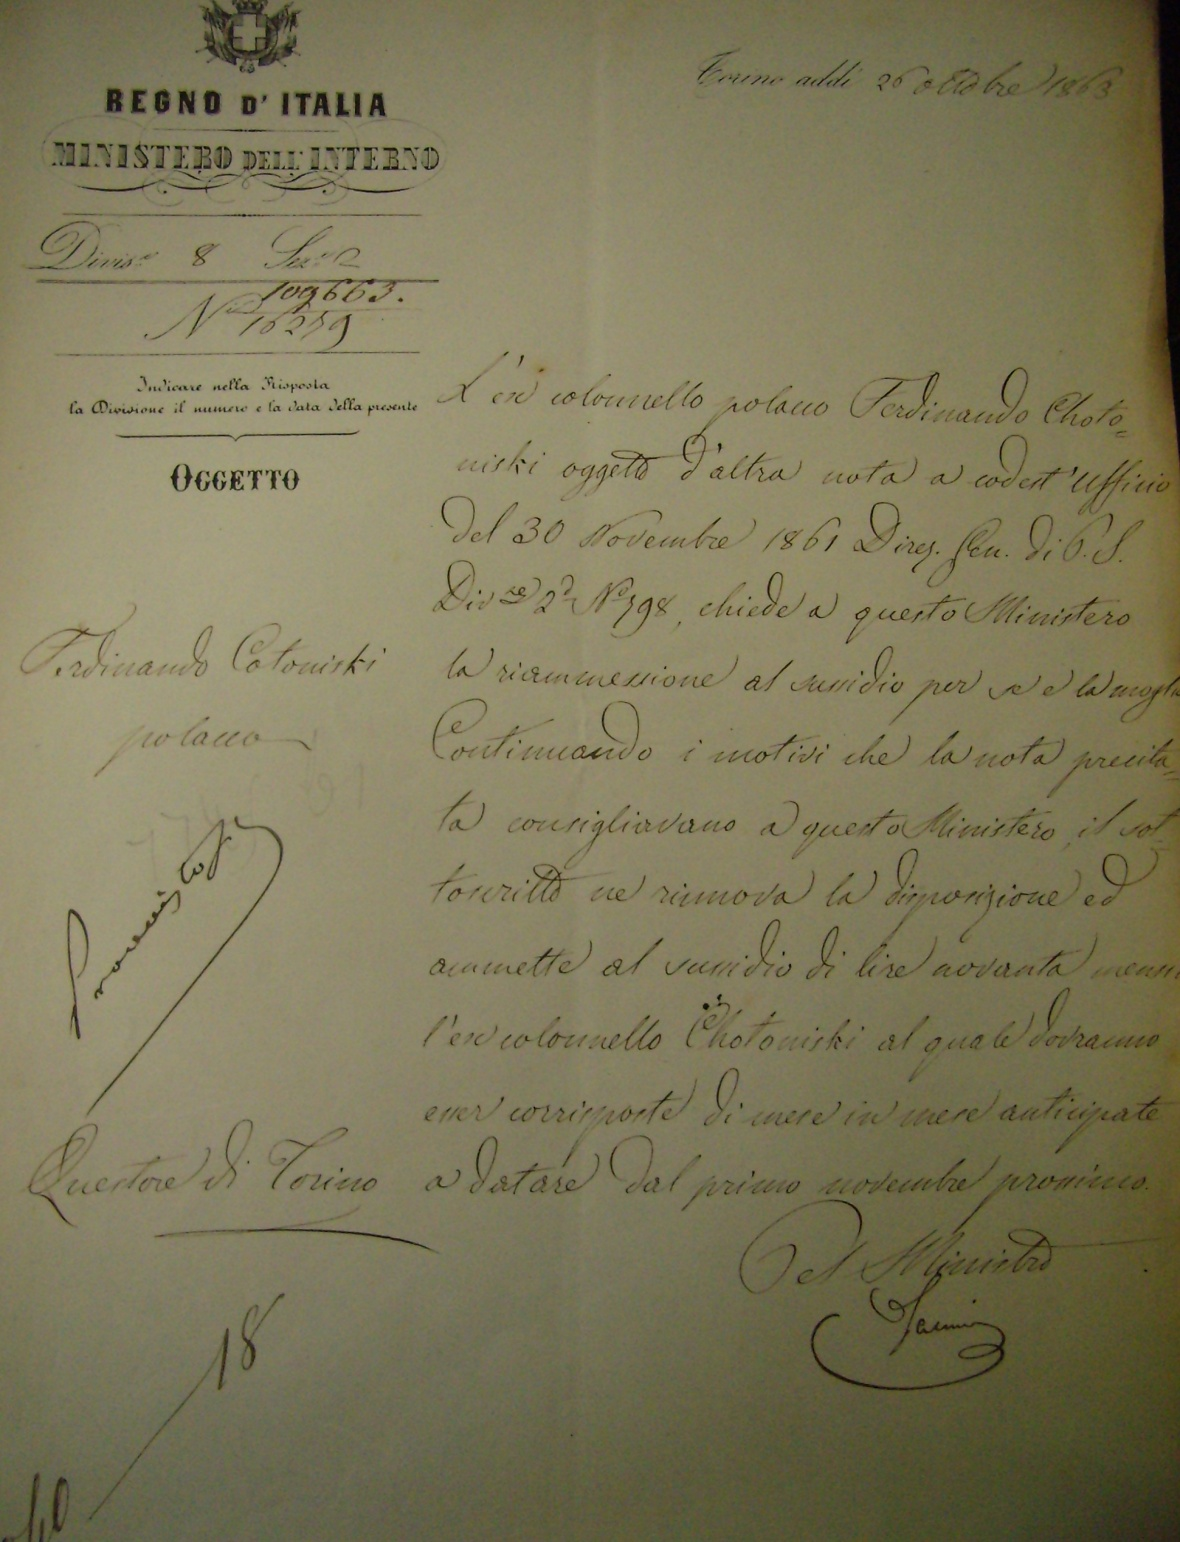 Torino addì 26 ottobre 1863
REGNO D' ITALIA
MINISTERO DELL' INTERNO
Divise 8 Sez. 2
109663.
N 16259
Indicare nella Risposta
la Divisione il numero e la data della presente
OGGETTO
Ferdinando Cotoniski
polacco
Questore di Torino
18
L'ex colonnello polacco Ferdinando Choto=
niski oggetto d'altra nota a codest'Ufficio
del 30 Novembre 1861 Direz. Gen. di P. S.
Divne 2a No 798, chiede a questo Ministero
la riammessione al sussidio per se e la moglie
Continuando i motivi che la nota precita=
ta consigliavano a questo Ministero, il sot=
toscritto ne rinnova la disposizione ed
ammette al sussidio di lire novanta mensili
l'ex colonnello Chotoniski al quale dovranno
esser corrisposte di mese in mese anticipate
a datare dal primo novembre prossimo.
Pel Ministro